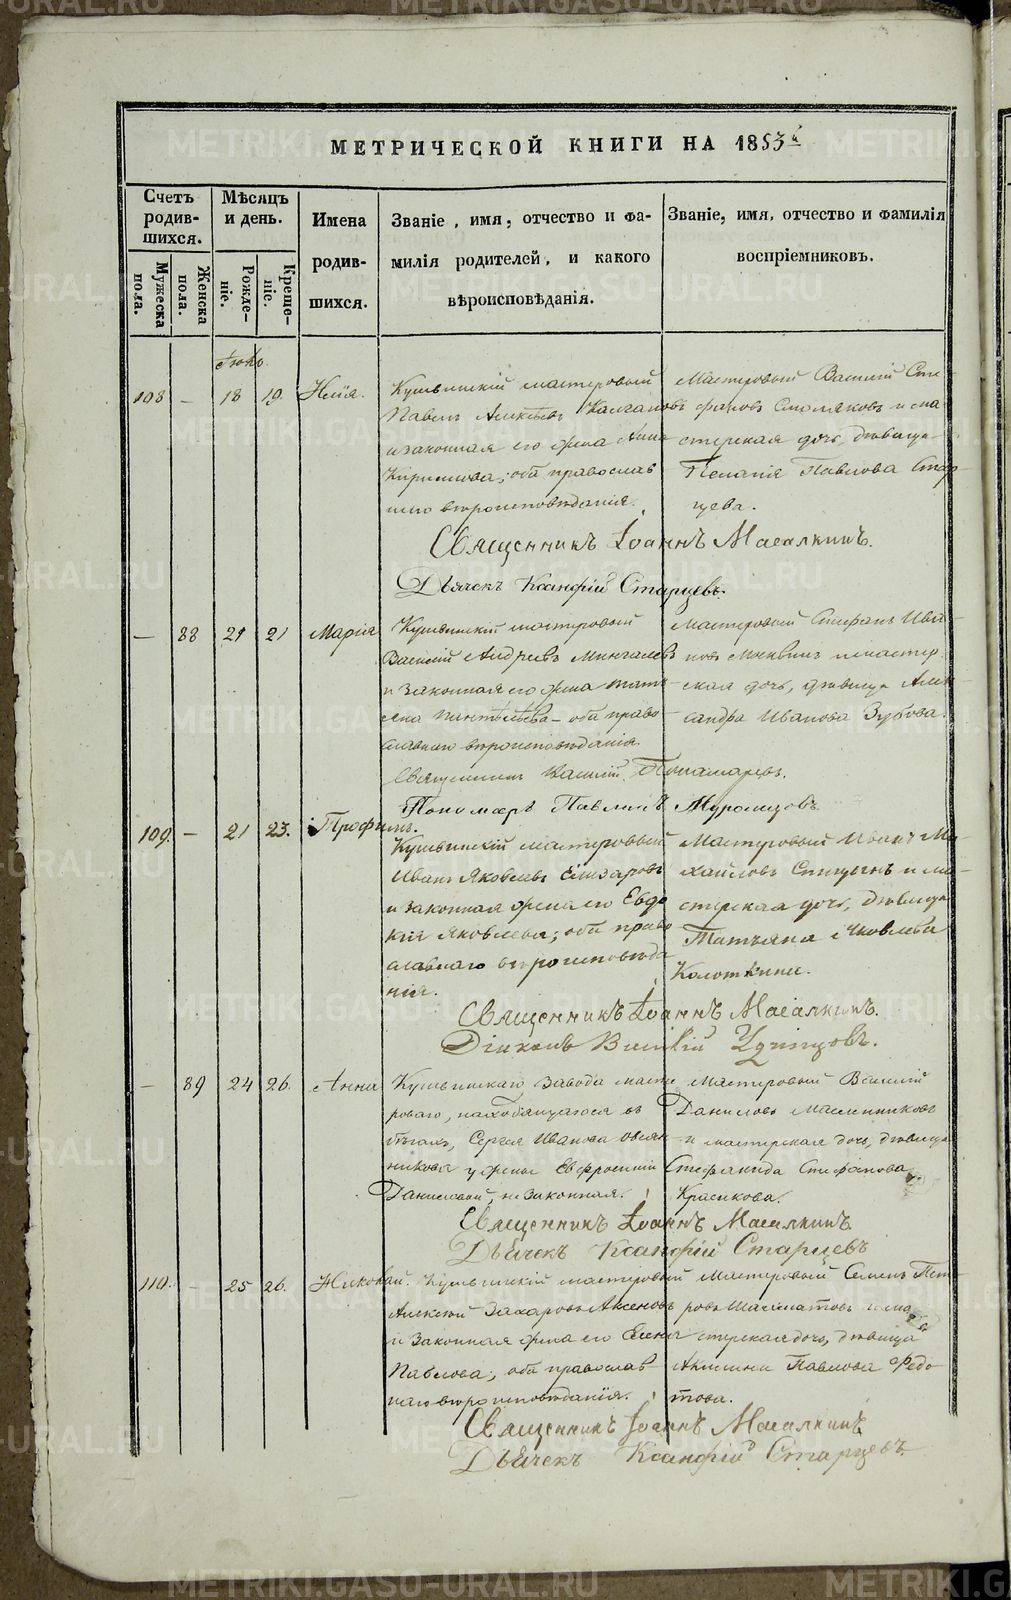 МЕТРИЧЕСКОЙ КНИГИ НА 1853
Счетъ родив-шихся.
Мужеска пола.
Женска пола.
Мѣсяцъ и день.
Рожде-ніе.
Креще-ніе.
Имена родив-шихся.
Званіе, имя, отчество и фа-
милія родителей, и какого
вѣроисповѣданія.
Званіе, имя, отчество и фамилія
воспріемниковъ.
108 — 18 19
Кушвинскій мастеровый
Павелъ Алексѣевъ
и законная его жена Анна
Кирилова; оба православ
наго вѣроисповѣданія.
Мастеровый Василій Сте-
фановъ Смоляковъ и ма-
стерская дочь, дѣвица
Пелагія Павлова Стар-
цева.
Священникъ Іоаннъ Масалкинъ.
Дьячекъ Ксанфій Старцевъ.
— 88 21 21 Марія
Кушвинскій мастеровый
Василій Андреевъ Мингалевъ
и законная его жена Тать-
яна Пантелѣева – оба право
славнаго вѣроисповѣданія
Мастеровый Стефанъ Ива-
новъ Москвинъ и мастер-
ская дочь, дѣвица Алек-
сандра Иванова Зубова.
Священникъ Василій Пономаревъ.
Пономарь Павлинъ Муромцовъ
109. — 21 23. Трофимъ.
Кушвинскій мастеровый
Иванъ Яковлевъ Елизаровъ
и законная жена его Евдо
кія Яковлева; оба право
славнаго вѣроисповѣда
нія.
Мастеровый Иванъ Ми-
хайловъ Спицынъ и ма-
стерская дочь, дѣвица
Татьяна Яковлева
Колоткина.
Священникъ Іоаннъ Масалкинъ.
Діаконъ Василій Удинцовъ.
— 89 24 26. Анна
Кушвинскаго завода масте
роваго, находящагося въ
бѣгахъ, Сергея Иванова Овсян-
никова у жены Евфросиніи
Даниловой, незаконная.
Мастеровый Василій
Даниловъ Масленниковъ
и мастерская дочь, дѣвица
Стефанида Стефанова
Красикова.
Священникъ Іоаннъ Масалкинъ
Дьячекъ Ксанфій Старцевъ
110. — 25 26. Николай.
Кушвинскій мастеровый
Алексѣй Захаровъ Аксеновъ
и законная жена его Елена
Павлова; оба православ
наго вѣроисповѣданія.
Мастеровый Семенъ Пет-
ровъ Шахматовъ и ма-
стерская дочь, дѣвица
Акилина Павлова Федо-
това.
Священникъ Іоаннъ Масалкинъ
Дьячекъ Ксанфій Старцевъ
METRIKI.GASO-URAL.RU